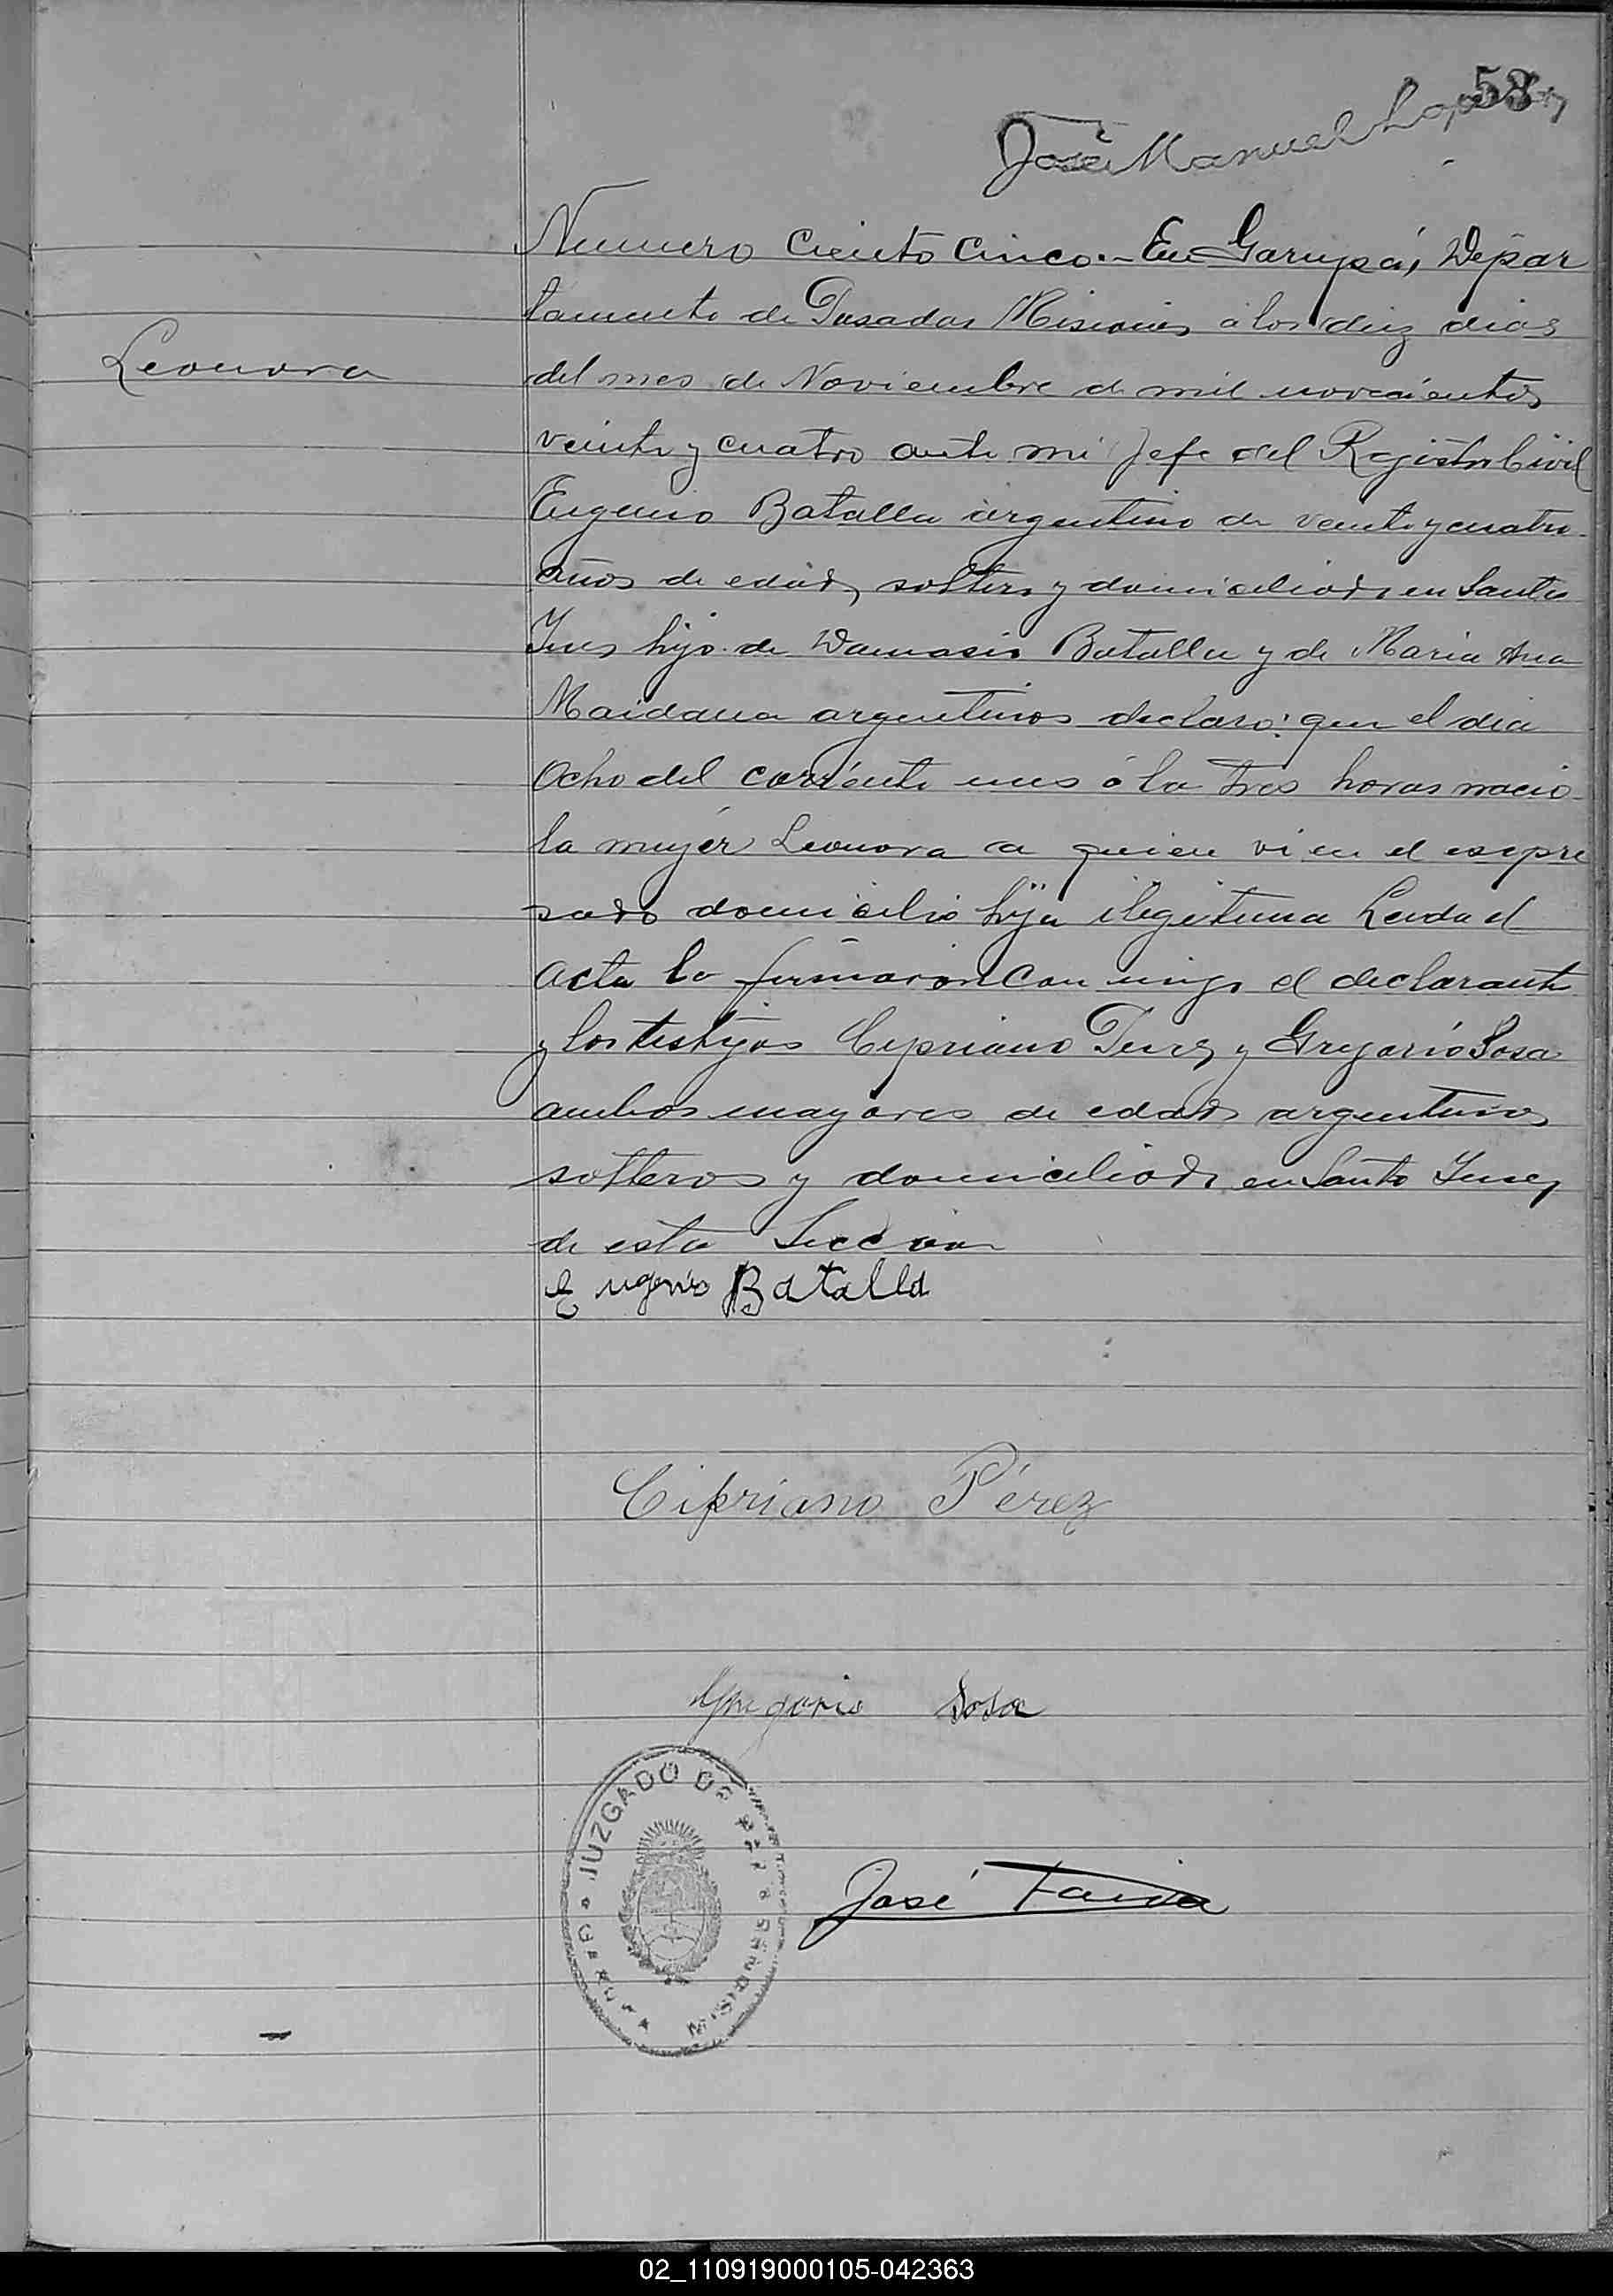 58
José Manuel
Numero Ciento Cinco.- En Garupá, Depar
tamento de Posadas Misiones á los diez dias
Leonora
del mes de Noviembre de mil novecientos
veinte y cuatro ante mi Jefe del Registro Civil
Eugenio Batalla argentino de veinte y cuatro
años de edad, soltero y domiciliado en Santa
Ines hijo de Damasio Batalla y de Maria Ana
Maidana argentinos declaro: que el dia
Ocho del corriente mes á la tres horas nacio
la mujer Leonora a quien vi en el esepre
sado domicilio hija ilegitima Leida el
Acta la firmaron con migo el declarante
y los testigos Cipriano Perez y Gregorio Sosa
ambos mayores de edad argentinos
solteros y domiciliado en Santa Ines,
de esta Seccion
Eugenio Batalla
Cipriano Pérez
Gregorio Sosa
JUZGADO DE PAZ
GARUPA
José
02_110919000105-042363